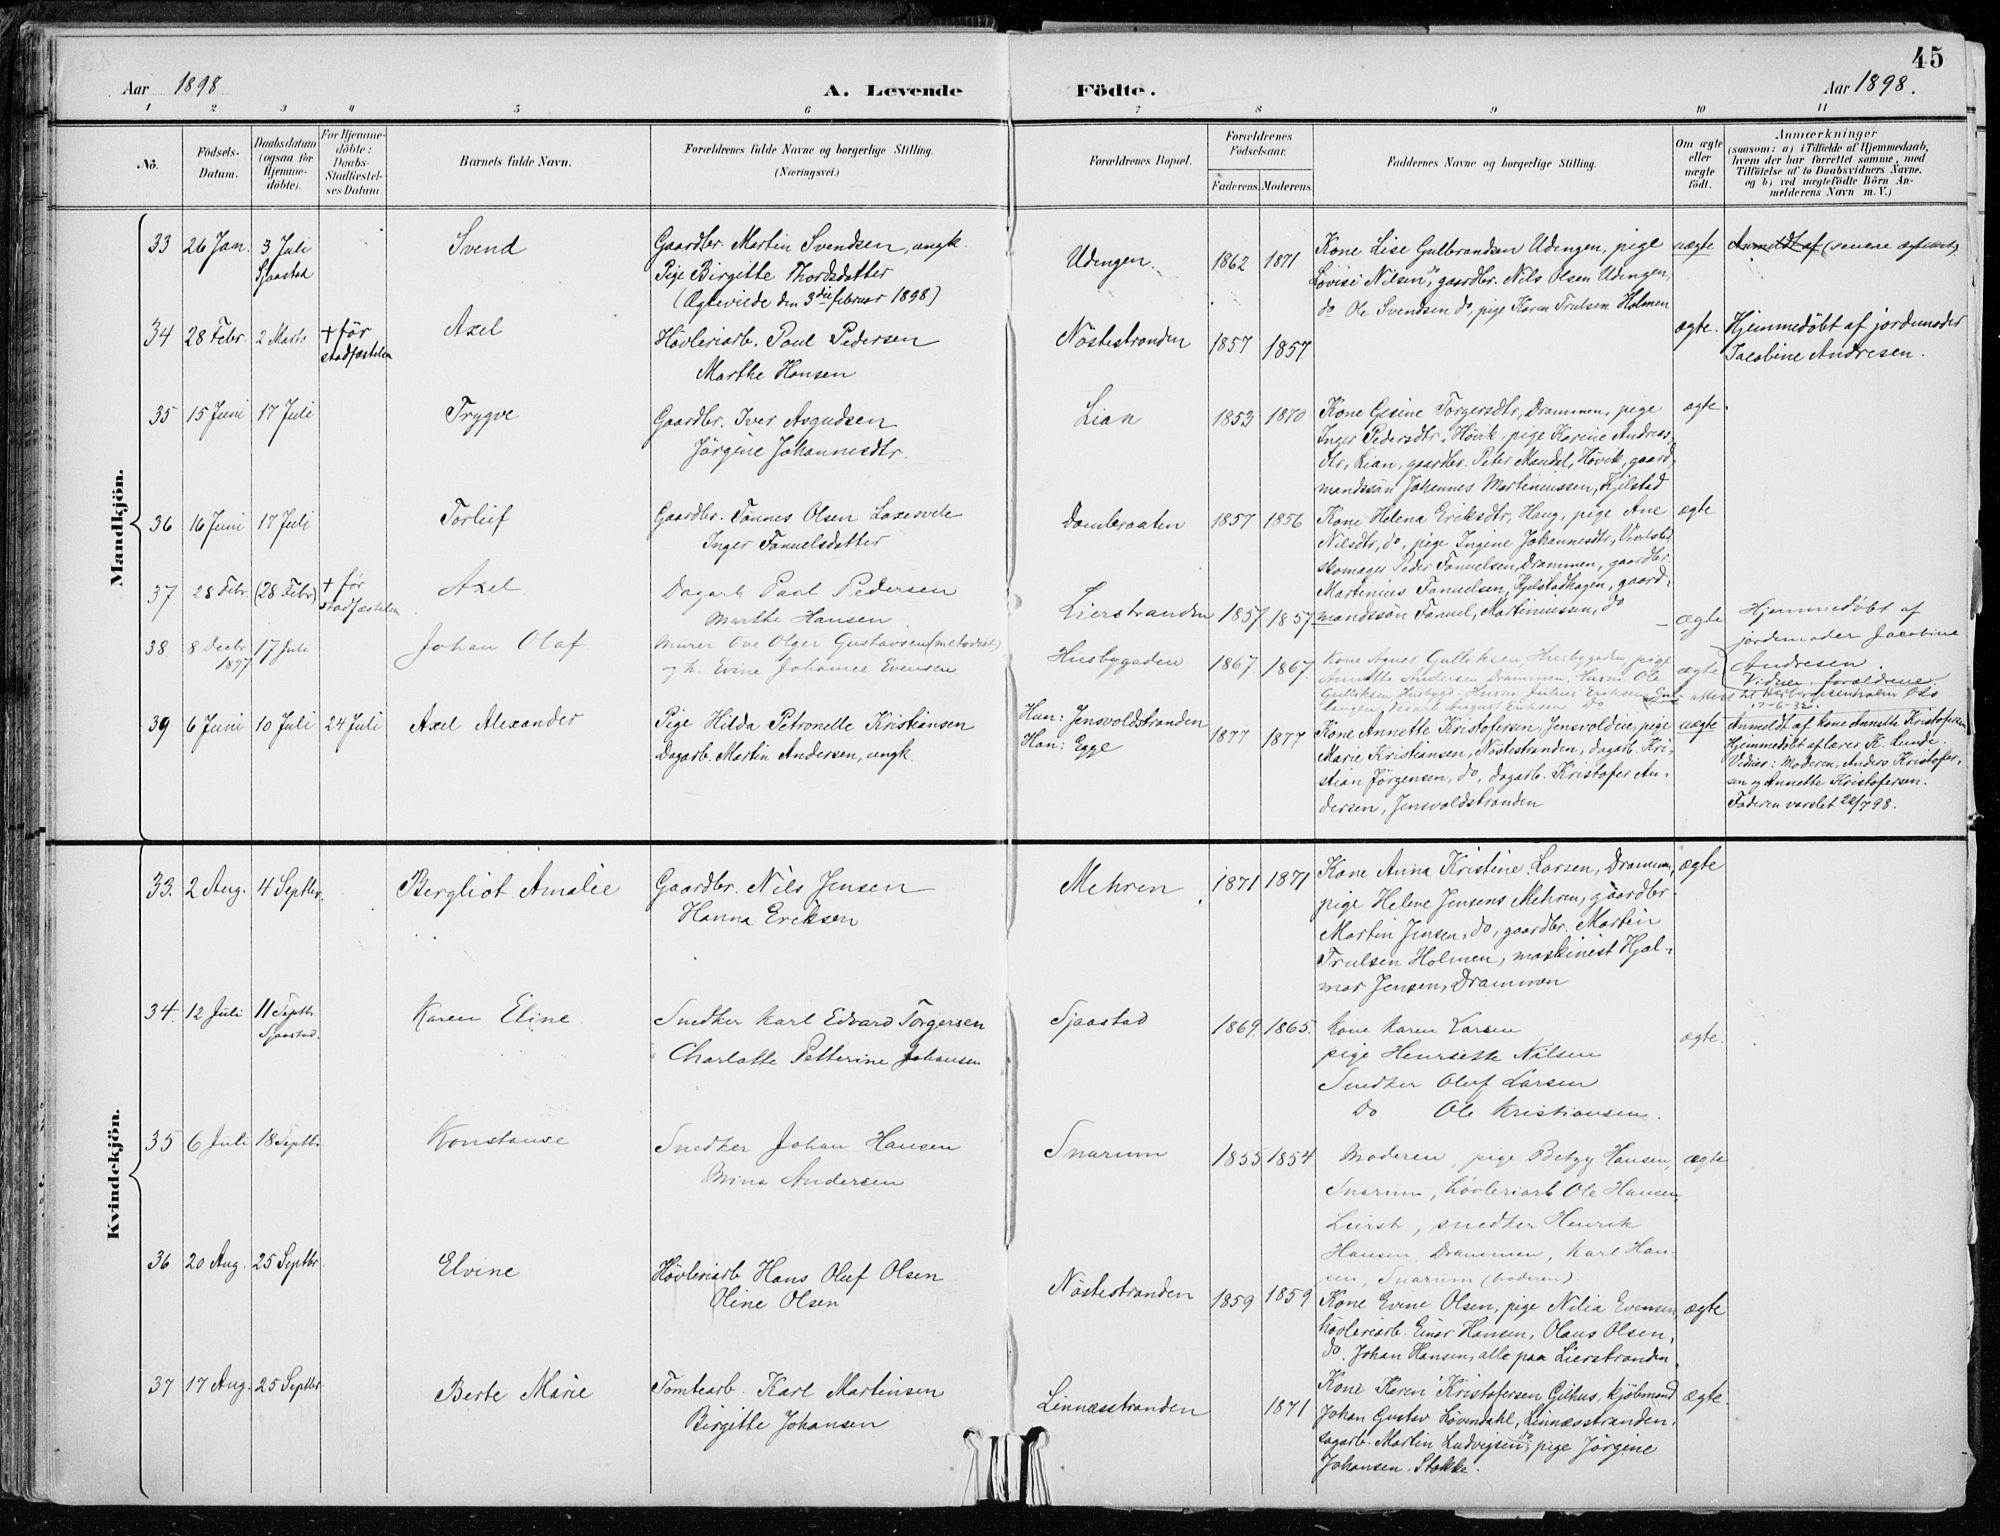 45
Aar 1898
A. Levende Födte.
Aar 1898.
1 2 3 4 5 6 7 8 9 10 11
No. Födsels-Datum. Daabsdatum (ogsaa for Hjemme-döbte). For Hjemme-döbte: Daabs-Stadfæstelses Datum. Barnets fulde Navn. Forældrenes fulde Navne og borgerlige Stilling. (Næringsvei.) Forældrenes Bopæl. Forældrenes Födselsaar. Faderens. Moderens. Faddernes Navne og borgerlige Stilling. Om ægte eller uægte födt.
Anmærkninger
(saasom: a) i Tilfælde af Hjemmedaab,
hvem der har forrettet samme, med
Tilföielse af to Daabsvidners Navne,
og b) ved uægtefödte Börn An-
melderens Navn m. V.)
Mandkjön.
33 26 Jan. 3 Juli Sjaastad Svend
Gaardbr. Martin Svendsen, ungk.
Pige Birgitte Thordsdatter
(Ægteviede den 3die februar 1898)
Udengen. 1862 1871
Kone Lise Gulbrandsen Udengen, pige
Lovise Nilsen, gaardbr. Nils Olsen Udengen,
do Ole Svendsen do, pige Karen Trulsen Holmen
uægte Anmeldt af (senere ægteviet)
34 28 Febr. 2 Marts + før stadfæstelsen Axel
Høvleriarb. Paul Pedersen
Marthe Hansen
Nøstestranden 1857 1857 ægte.
Hjemmedøbt af jordemoder
Jacobine Andresen.
35 15 Juni 17 Juli Trygve
Gaardbr. Iver Asgudsen
Jörgine Johannesdtr.
Lian 1853 1870
Kone Gesine Torgersdtr, Drammen, pige
Inger Pedersdtr. Høvik, pige Karine Andreas-
dtr, Lian, gaardbr. Peter Mandal, Høvik, gaard-
mandssøn Johannes Martiniussen, Kjelstad
ægte.
36 16 Juni 17 Juli Torleif
Gaardbr. Tønnes Olsen
Inger Fanuelsdatter
Dambraaten 1857 1856
Kone Helena Eriksdtr, Haug, pige Ane
Nilsdtr, do, pige Ingine Johannesdtr,
skomager Peder Fanuelsen, Drammen, gaardbr.
Martinius Fanuelsen, Kjelstadhagen, gaard-
mandssøn Fanuel Martinussen, do
ægte
37 28 Febr. (28 Febr) + før stadfæstelsen Axel
Dagarb. Paul Pedersen
Marthe Hansen
Lierstranden 1857 1857 ægte
Hjemmedøbt af
jordemoder Jacobine
Andresen.
Vidner: forældrene.
38 8 Decbr. 1897 17 Juli Johan Olaf
Murer Ove Olger Gustavsen (methodist)
og h. Evine Johanne Evensen
Husbygaden 1867 1867.
Kone Agnes Gulliksen, Husbygaden, pige
Annette Andersen, Drammen, Husm. Ole
Gulliksen, Husbygd. Husm. Julius Eriksen
August Eriksen do
ægte
39 6 Juni 10 Juli 24 Juli Axel Alexander
Pige Hilda Petronelle Kristiansen
Dagarb. Martin Andersen, ungk.
Hun: Jensvoldstranden
Han: Egge
1877 1877
Kone Annette Kristofersen, Jensvoldeie, pige
Marie Kristiansen, Nøstestranden, dagarb. Kri-
stian Jørgensen, do, dagarb. Kristofer An-
dersen, Jensvoldstranden
uægte
Anmeldt af kone Annette Kristofersen
Hjemmedøbt af lærer K. Lunde.
Vidner: Moderen, Anders Kristofer-
sen og Annette Kristofersen.
Faderen varslet 22/7 98.
Kvindekjön.
33. 2 Aug. 4 Septbr. Bergliot Amalie
Gaardbr. Nils Jensen
Hanna Eriksen
Mehren 1871 1871
Kone Anna Kristine Larsen, Drammen,
pige Helene Jensens Mehren, gaardbr.
Martin Jensen, do, gaardbr. Martin
Trulsen Holmen, maskinist Hjal-
mar Jensen, Drammen
ægte
34. 12 Juli 11 Septbr. Sjaastad. Karen Eline
Snedker Karl Edvard Torgersen
Charlotte Petterine Johansen
Sjaastad 1869. 1865.
Kone Karen Larsen
pige Henriette Nilsen
Snedker Oluf Larsen
Do Ole Kristiansen.
ægte.
35 6 Juli 18 Septbr Konstanse
Snedker Johan Hansen
Mina Andersen
Snarum 1855 1854
Moderen, pige Betzy Hansen,
Snarum, høvleriarb Ole Hansen,
Lierst, snedker Henrik
Hansen, Drammen, Karl Han-
sen, Snarum
ægte
36 20 Aug. 25 Septbr. Elvine
Høvleriarb Hans Oluf Olsen
Oline Olsen
Nøstestranden 1859 1859
Kone Evine Olsen, pige Nilia Evensen,
høvleriarb. Einar Hansen, Olaus Olsen,
do. Johan Hansen, alle paa Lierstranden.
ægte
37 17 Aug. 25 Septbr Berte Marie
Tomtearb. Karl Martinsen
Birgitte Johansen
Linnæsstranden 1871
Kone Karen Kristofersen Gilhus, kjøbmand
Johan Gustav Løvendahl, Linnæsstranden.
dagarb. Martin Ludvigsen do, pige Jörgine
Johansen. Stokke.
ægte.